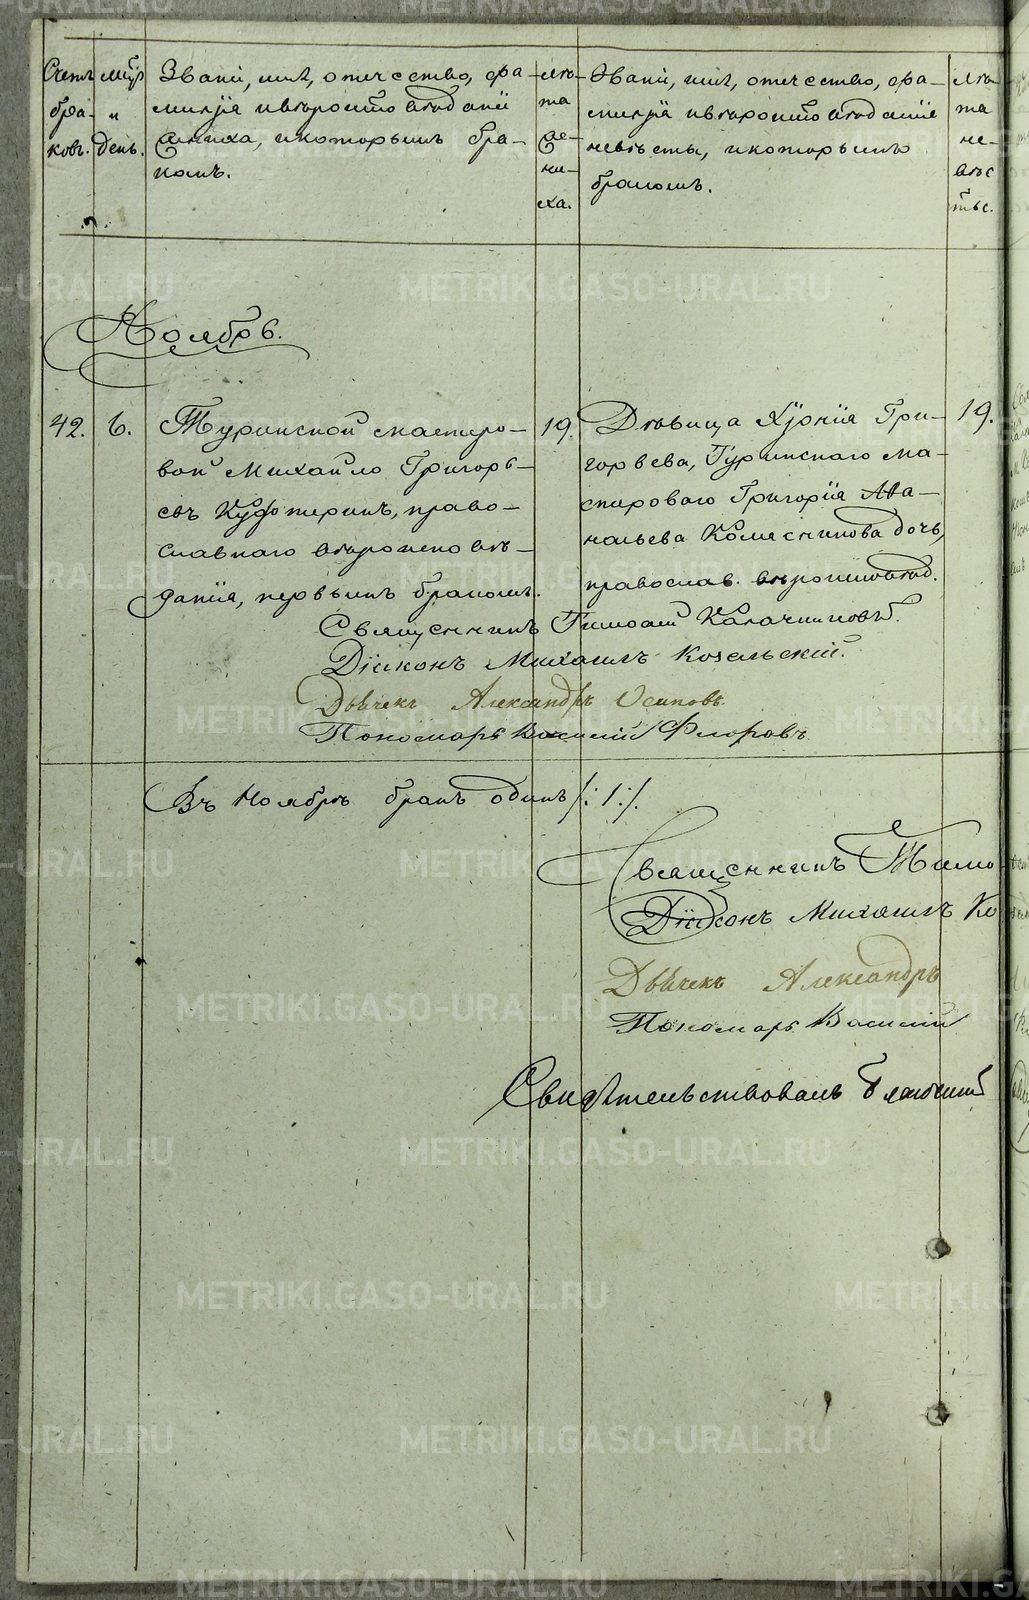 Счетъ бра- ковъ.
Мцъ и день.
Званiе, имя, отчество, фа-
милiя и вѣроисповѣданiе
жениха, и которымъ бра-
комъ.
лѣ-
та
же-
ни-
ха.
Званiе, имя, отчество, фа-
милiя и вѣроисповѣданiе
невѣсты, и которымъ
бракомъ.
лѣ-
та
не-
вѣс
ты.
Ноябрь.
42. 6.
Туринской мастеро-
вой Михайло Григорь-
евъ, право-
славнаго вѣроисповѣ-
данiя, первымъ бракомъ.
19.
Дѣвица Григорьева, Туринскаго ма-
стероваго Григорiя
Колесникова дочь,
православ. вѣроисповѣд.
19.
Священникъ Тимофей Калачниковъ.
Дiаконъ Михаилъ Козельскiй.
Дьячекъ Александръ Осиповъ
Пономарь Василiй Флоровъ
Въ Ноябрѣ бракъ одинъ /: 1 :/.
Священникъ Тимо
Дiаконъ Михаилъ Ко
Дьячекъ Александръ
Пономарь Василiй
Свидѣтельствовалъ
METRIKI.GASO-URAL.RU